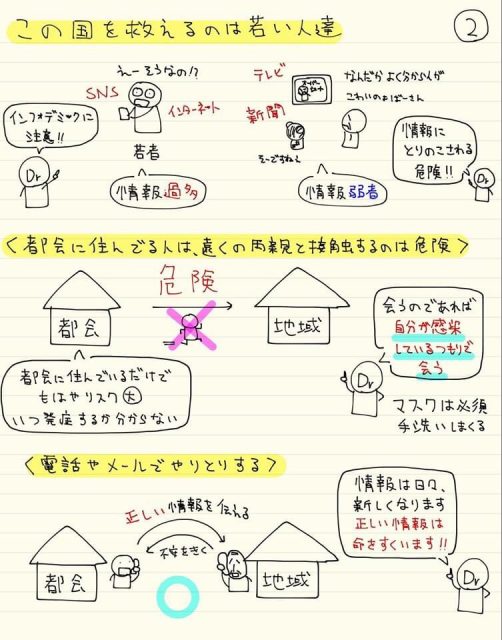 この国を救えるのは若い人達
②
えーそうなの!?
SNS
インターネット
若者
インフォデミックに
注意!!
Dr
情報過多
テレビ
なんだかよく分からんが
こわいのぉばーさん
新聞
そーですねぇ
情報弱者
情報に
とりのこされる
危険!!
Dr
<都会に住んでる人は、遠くの両親と接触するのは危険>
危険
都会
地域
都会に住んでいるだけで
もはやリスク大
いつ発症するか分からない
会うのであれば
自分が感染
しているつもりで
会う
Dr
マスクは必須
手洗いしまくる
<電話やメールでやりとりする>
正しい情報を伝える
不安をきく
都会
地域
情報は日々、
新しくなります
正しい情報は
命をすくいます!!
Dr